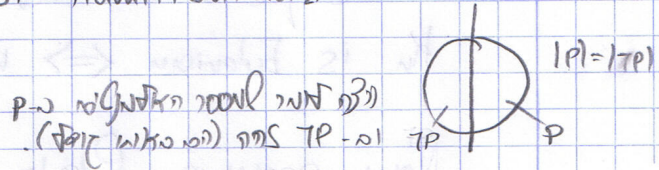 |P|=|¬P|
נרצה לומר שמספר האלמנטים ב-P
וב-¬P זהה (הם מאותו גודל).
¬P
P